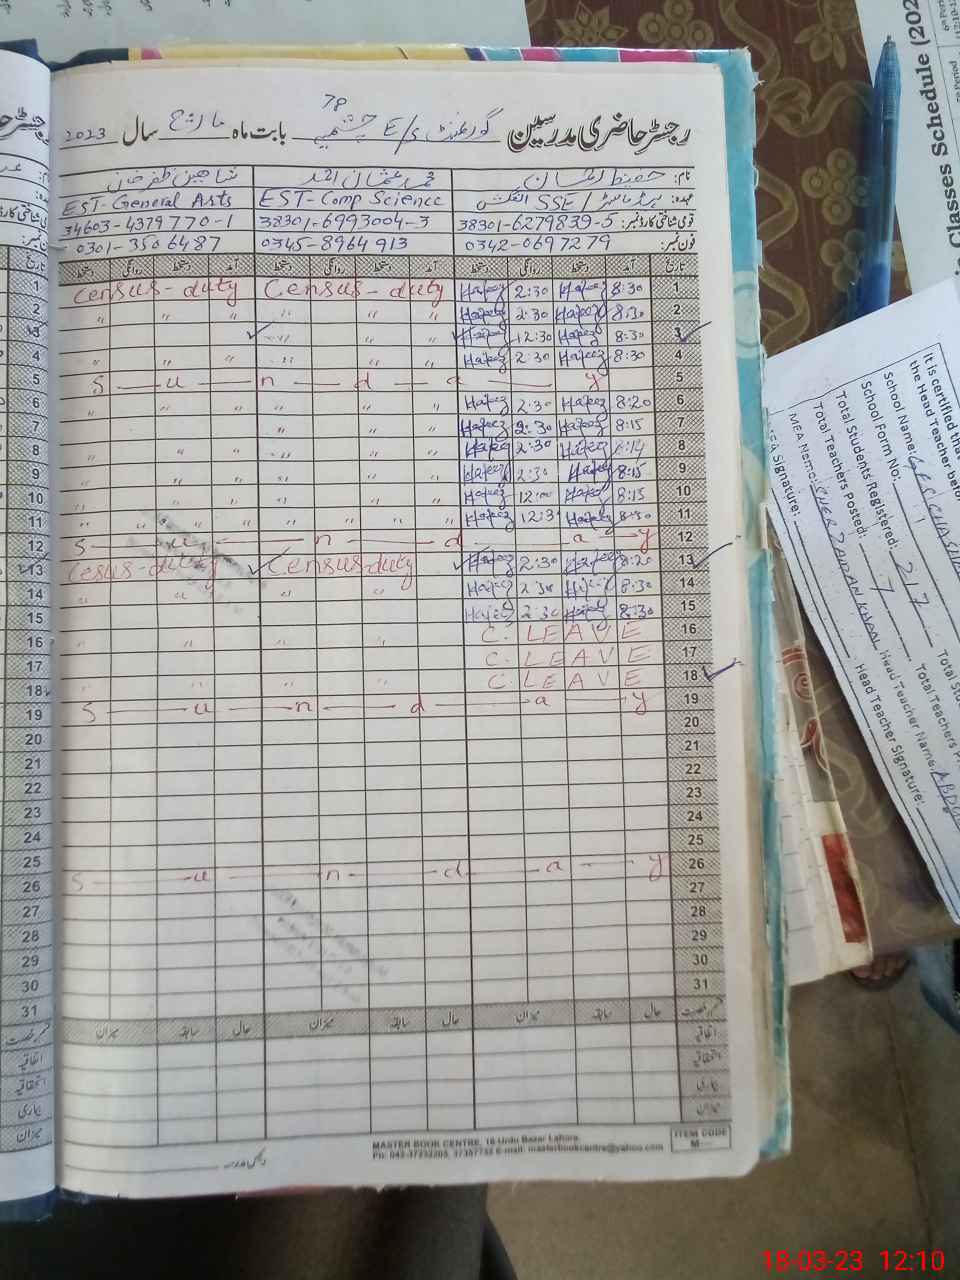 رجسٹر حاضری مدرسین گورنمنٹ E/S چشمیہ 78 بابت ماہ مارچ سال 2023
نام: حفیظ الرحمان محمد عثمان احمد شاہین ظفر خان
عہدہ: SSE / انگلش EST-Comp Science EST-General Arts
قومی شناختی کارڈ نمبر: 38301-6279839-5 38301-6993004-3 34603-4379770-1
فون نمبر: 0342-0697279 0345-8964913 0301-3506487
تاریخ آمد دستخط روانگی دستخط آمد دستخط روانگی دستخط آمد دستخط روانگی دستخط
1 8:30 Hafeez 2:30 Hafeez Census-duty Census-duty
2 8:30 Hafeez 2:30 Hafeez " " " " " "
3 8:30 Hafeez 12:30 Hafeez " " " " " "
4 8:30 Hafeez 2:30 Hafeez " " " " " "
5 Sunday
6 8:20 Hafeez 2:30 Hafeez " " " " " "
7 8:15 Hafeez 2:30 Hafeez " " " " " "
8 8:14 Hafeez 2:30 Hafeez " " " " " "
9 8:15 Hafeez 2:30 Hafeez " " " " " "
10 8:15 Hafeez 12:00 Hafeez " " " " " "
11 8:30 Hafeez 12:3 Hafeez " " " " " "
12 Sunday
13 8:20 Hafeez 2:30 Hafeez Census-duty Cesus-duty
14 8:30 Hafeez 2:30 Hafeez " " " "
15 8:30 Hafeez 2:30 Hafeez
16 C. LEAVE " " " "
17 C. LEAVE
18 C. LEAVE " " "
19 Sunday
20
21
22
23
24
25
26 Sunday
27
28
29
30
31
حال سابقہ میزان حال سابقہ میزان حال سابقہ میزان
اتفاقیہ
استحقاقیہ
بیماری
میزان
MASTER BOOK CENTRE, 16-Urdu Bazar Lahore.
Ph: 042-37232205, 37357732 E-mail: masterbookcentre@yahoo.com
ITEM CODE
M---
Classes Schedule (202
It is certified tha
the Head Teacher befor
School Name:
School Form NO:
Total Students Registered: 217
Total Teachers Posted: 7
MEA Name:
Head Teacher Name:
MEA Signature:
Head Teacher Signature:
18-03-23 12:10